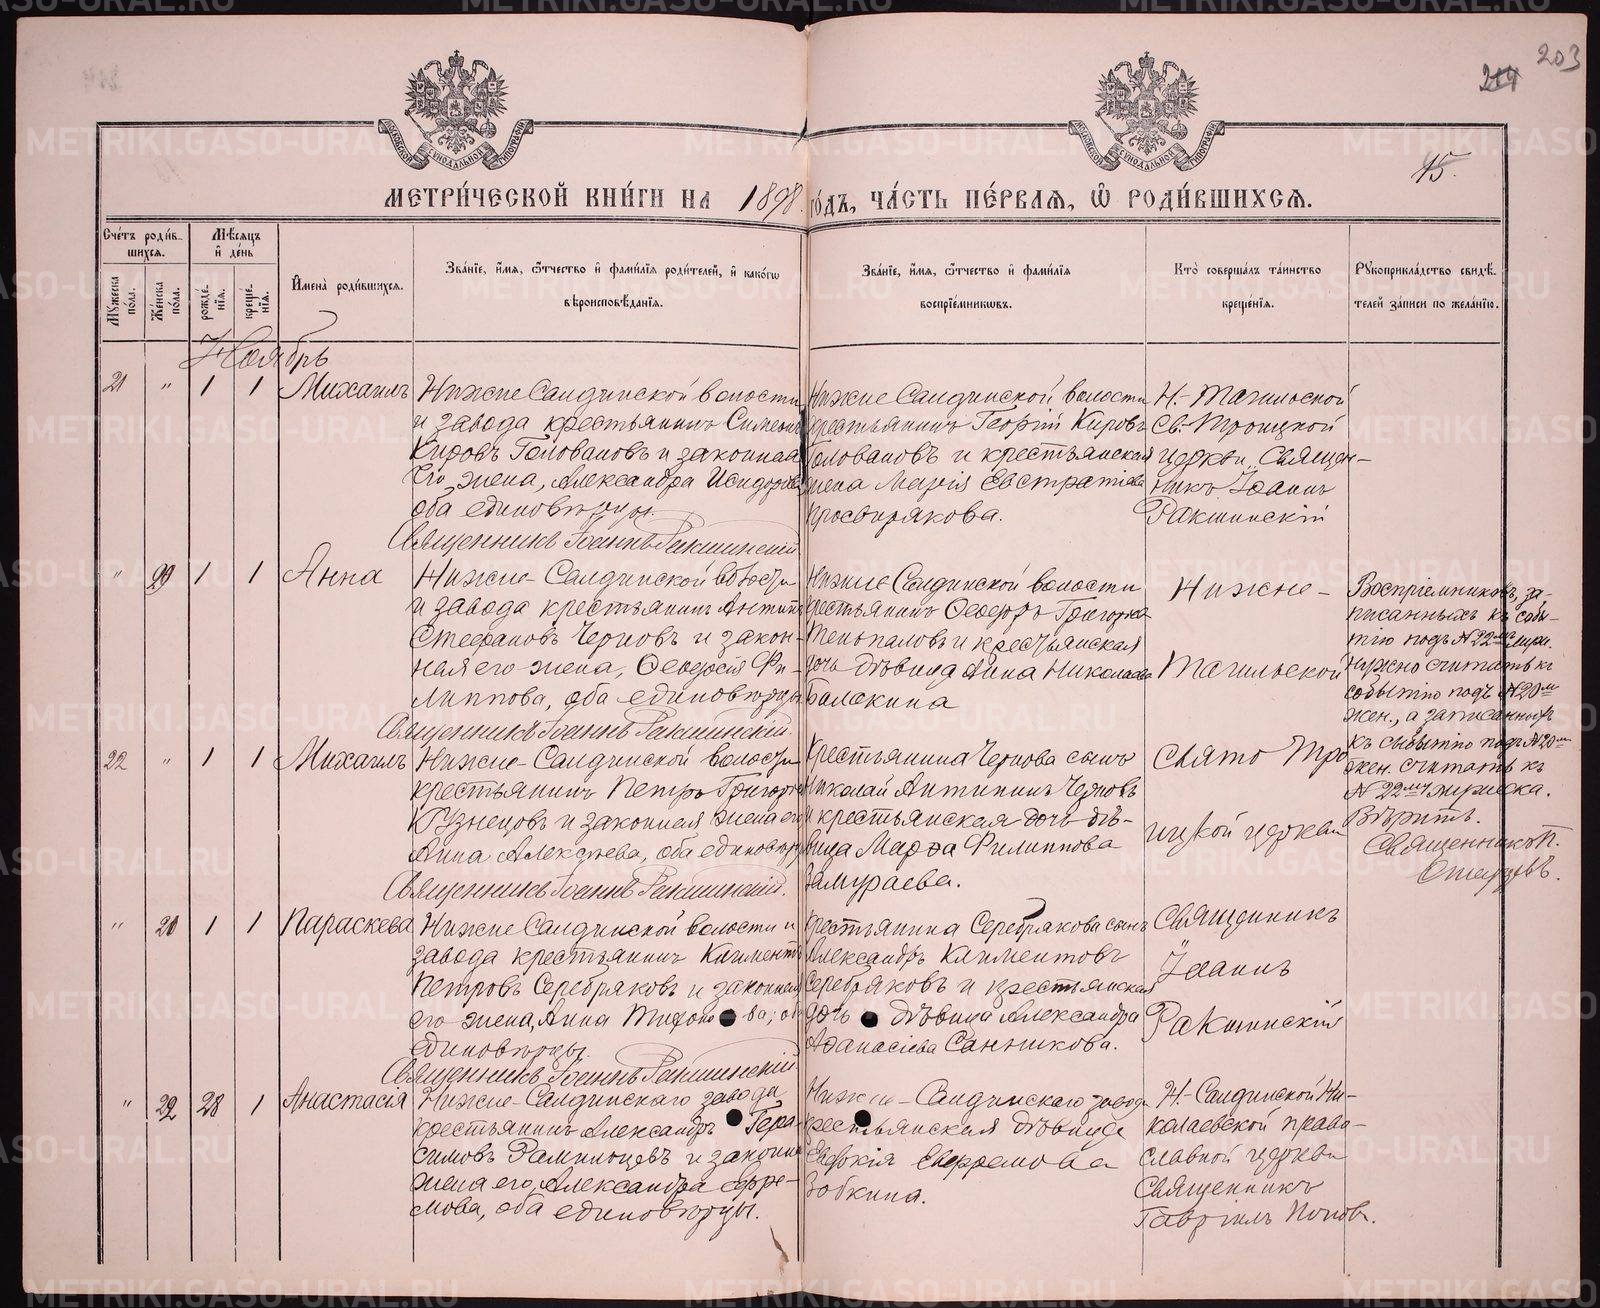 203
214
15.
МОСКОВСКОЙ СѴНОДАЛЬНОЙ ТИПОГРАФІИ
МОСКОВСКОЙ СѴНОДАЛЬНОЙ ТИПОГРАФІИ
МЕТРИ́ЧЕСКОЙ КНИ́ГИ НА 1898 ГО́ДЪ, ЧА́СТЬ ПЕ́РВАѦ, Ѽ РОДИ́ВШИХСѦ.
Сче́тъ роди́вшихсѧ.
Мꙋ́жеска по́ла.
Же́нска по́ла.
Мѣ́сѧцъ и҆ де́нь
рожде́нїѧ.
креще́нїѧ.
И҆мена̀ роди́вшихсѧ.
Зва́нїе, и҆́мѧ, ѻ҆́тчество и҆ фами́лїѧ роди́телей, и҆ како́гѡ
вѣроисповѣ́данїѧ.
Зва́нїе, и҆́мѧ, ѻ҆́тчество и҆ фами́лїѧ
воспрїе́мникѡвъ.
Кто̀ соверша́лъ та́инство
креще́нїѧ.
Рꙋкоприкла́дство свидѣ́телей за́писи по жела́нїю.
Ноябрь
21 " 1 1 Михаилъ
Нижне Салдинской волости
и завода крестьянинъ Симеонъ
Кировъ Головановъ и законная
его жена, Александра Исидорова
оба единовѣрцы.
Священникъ Іоаннъ Ракшинскій
Нижне Салдинской волости
крестьянинъ Георгій Кировъ
Головановъ и крестьянская
жена Марія Евстратіева
Просвирякова.
Н.-Тагильской
Св.-Троицкой
церкви Священ-
никъ Іоаннъ
Ракшинскій
" 20 1 1 Анна
Нижне-Салдинской волости
и завода крестьянинъ Антипъ
Стефановъ Черновъ и закон-
ная его жена, Ѳеодосія Фи-
липпова, оба единовѣрцы
Священникъ Іоаннъ Ракшинскій.
Нижне Салдинской волости
крестьянинъ Ѳеодоръ Григорьевъ
и крестьянская
дочь дѣвица Анна Николаева
Балакина
Нижне-
Тагильской
Воспріемниковъ, за-
писанныхъ къ собы-
тію подъ № 22мъ муж.
нужно считать къ
событію подъ № 20мъ
жен., а записанныхъ
къ событію подъ № 20мъ
жен. считать къ
№ 22му мужеска.
Вѣрить.
Священникъ П.
22 " 1 1 Михаилъ
Нижне-Салдинской волости
крестьянинъ Петръ Григорьевъ
Кузнецовъ и законная жена его
Анна Алексѣева, оба единовѣрцы
Священникъ Іоаннъ Ракшинскій.
Крестьянина Чернова сынъ
Николай Антипинъ Черновъ
и крестьянская дочь дѣ-
вица Марѳа Филиппова
Замураева.
Свято Тро
ицкой церкви
" 21 1 1 Параскева
Нижне Салдинской волости и
завода крестьянинъ Климентъ
Петровъ Серебряковъ и законная
его жена, Анна Тихонова, оба
единовѣрцы.
Священникъ Іоаннъ Ракшинскій
Крестьянина Серебрякова сынъ
Александръ Климентовъ
Серебряковъ и крестьянская
дочь дѣвица Александра
Аѳанасіева Санникова.
Священникъ
Іоаннъ
Ракшинскій
" 22 28 1 Анастасія
Нижне-Салдинскаго завода
крестьянинъ Александръ Гера-
симовъ и законная
жена его, Александра Ефре-
мова, оба единовѣрцы.
Нижне-Салдинскаго завода
крестьянская дѣвица
Евдокія Ефремова
Зобнина.
Н.-Салдинской Ни-
колаевской право-
славной церкви
Священникъ
Гавріилъ Поповъ.
METRIKI.GASO-URAL.RU